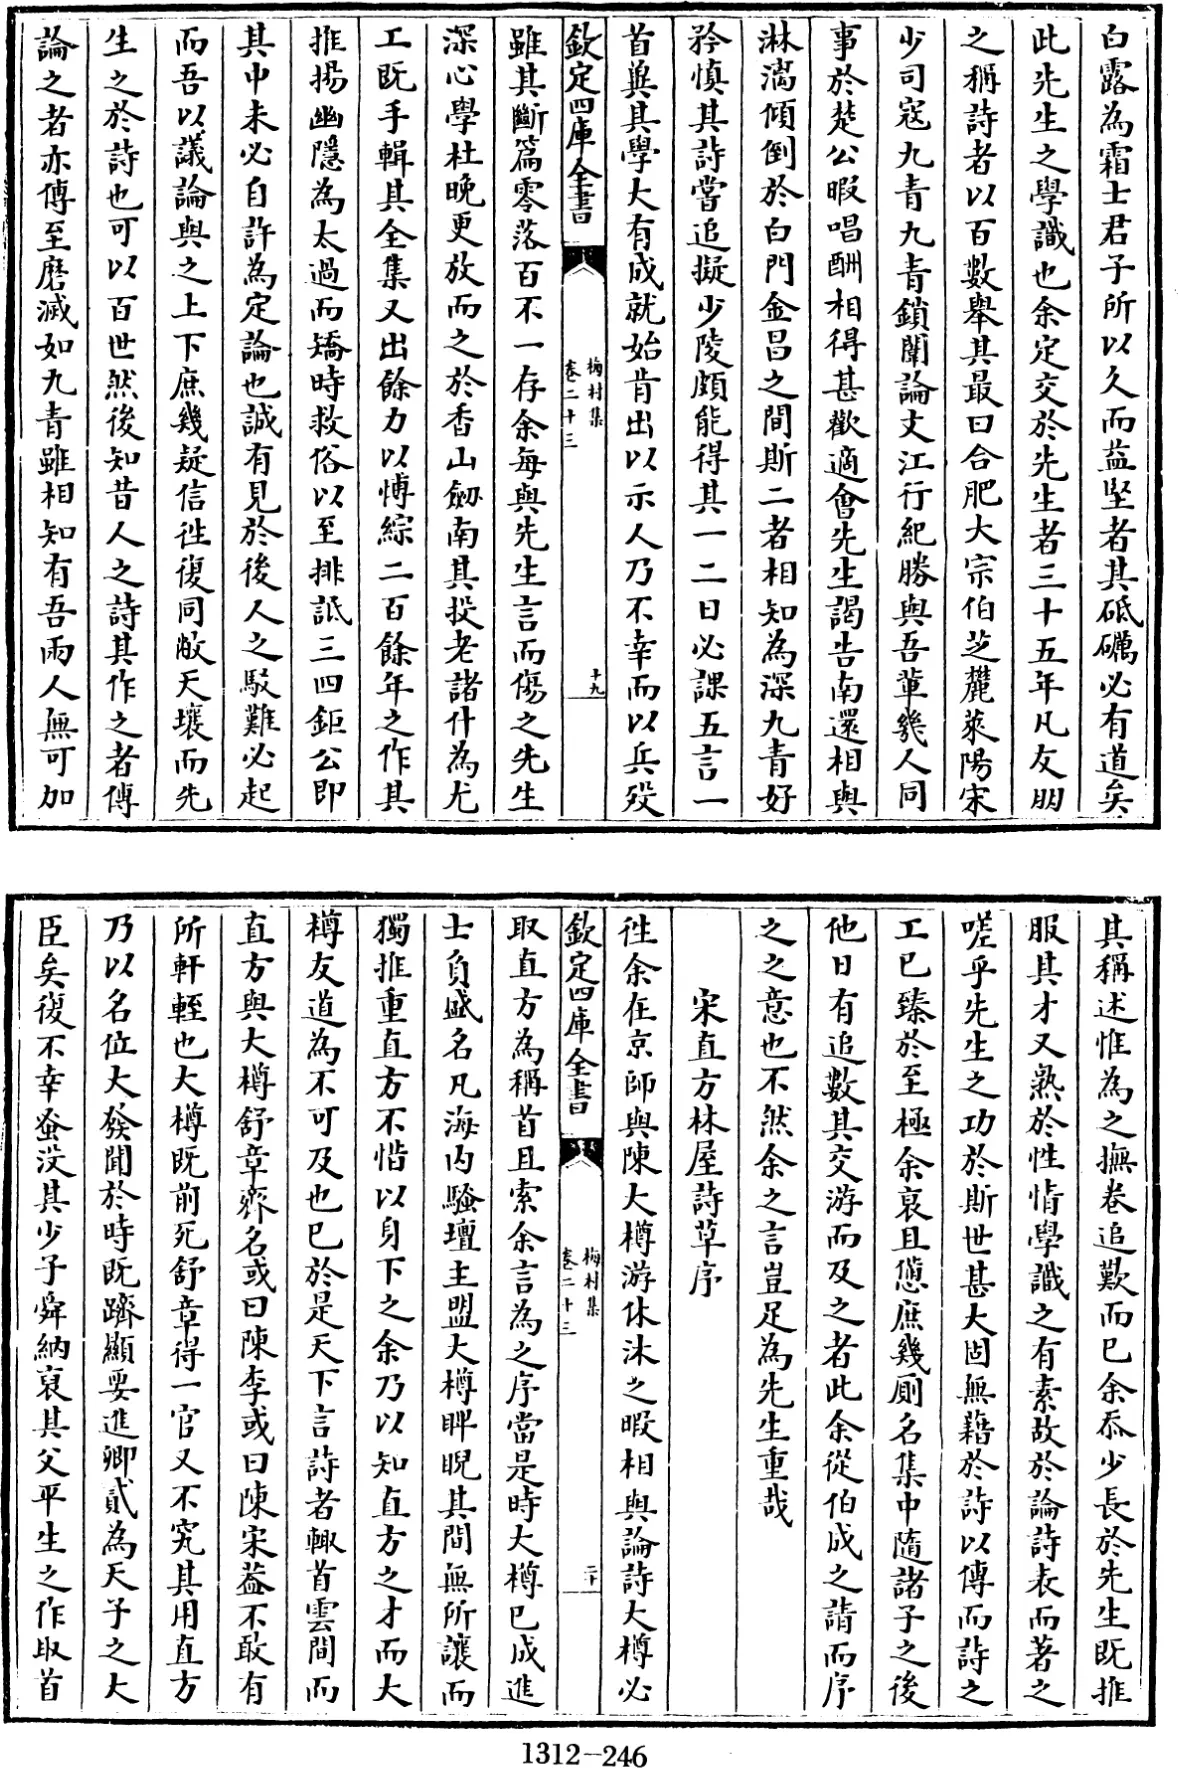 白露為霜士君子所以久而益堅者其砥礪必有道矣
此先生之學識也余定交於先生者三十五年凡友朋
之稱詩者以百數舉其最曰合肥大宗伯芝麓萊陽宋
少司寇九青九青鎖闈論文江行紀勝與吾輩幾人同
事於楚公暇唱酬相得甚歡適會先生謁告南還相與
淋漓傾倒於白門金昌之間斯二者相知為深九青好
矜慎其詩嘗追擬少陵頗能得其一二日必課五言一
首冀其學大有成就始肯出以示人乃不幸而以兵歿
欽定四庫全書
梅村集
卷二十三
十九
雖其斷篇零落百不一存余每與先生言而傷之先生
深心學杜晚更放而之於香山劒南其投老諸什為尤
工既手輯其全集又出餘力以博綜二百餘年之作其
推揚幽隱為太過而矯時救俗以至排詆三四鉅公即
其中未必自許為定論也誠有見於後人之駁難必起
而吾以議論與之上下庶幾疑信往復同敝天壤而先
生之於詩也可以百世然後知昔人之詩其作之者傳
論之者亦傳至磨滅如九青雖相知有吾兩人無可加
其稱述惟為之撫卷追歎而已余忝少長於先生既推
服其才又熟於性情學識之有素故於論詩表而著之
嗟乎先生之功於斯世甚大固無藉於詩以傳而詩之
工已臻於至極余衰且憊庶幾厠名集中隨諸子之後
他日有追數其交游而及之者此余從伯成之請而序
之之意也不然余之言豈足為先生重哉
宋直方林屋詩草序
往余在京師與陳大樽游休沐之暇相與論詩大樽必
欽定四庫全書
梅村集
卷二十三
二十
取直方為稱首且索余言為之序當是時大樽已成進
士負盛名凡海内騷壇主盟大樽睥睨其間無所讓而
獨推重直方不惜以身下之余乃以知直方之才而大
樽友道為不可及也已於是天下言詩者輙首雲間而
直方與大樽舒章齊名或曰陳李或曰陳宋葢不敢有
所軒輊也大樽既前死舒章得一官又不究其用直方
乃以名位大發聞於時既躋顯要進卿貳為天子之大
臣矣復不幸蚤没其少子舜納裒其父平生之作取首
1312-246